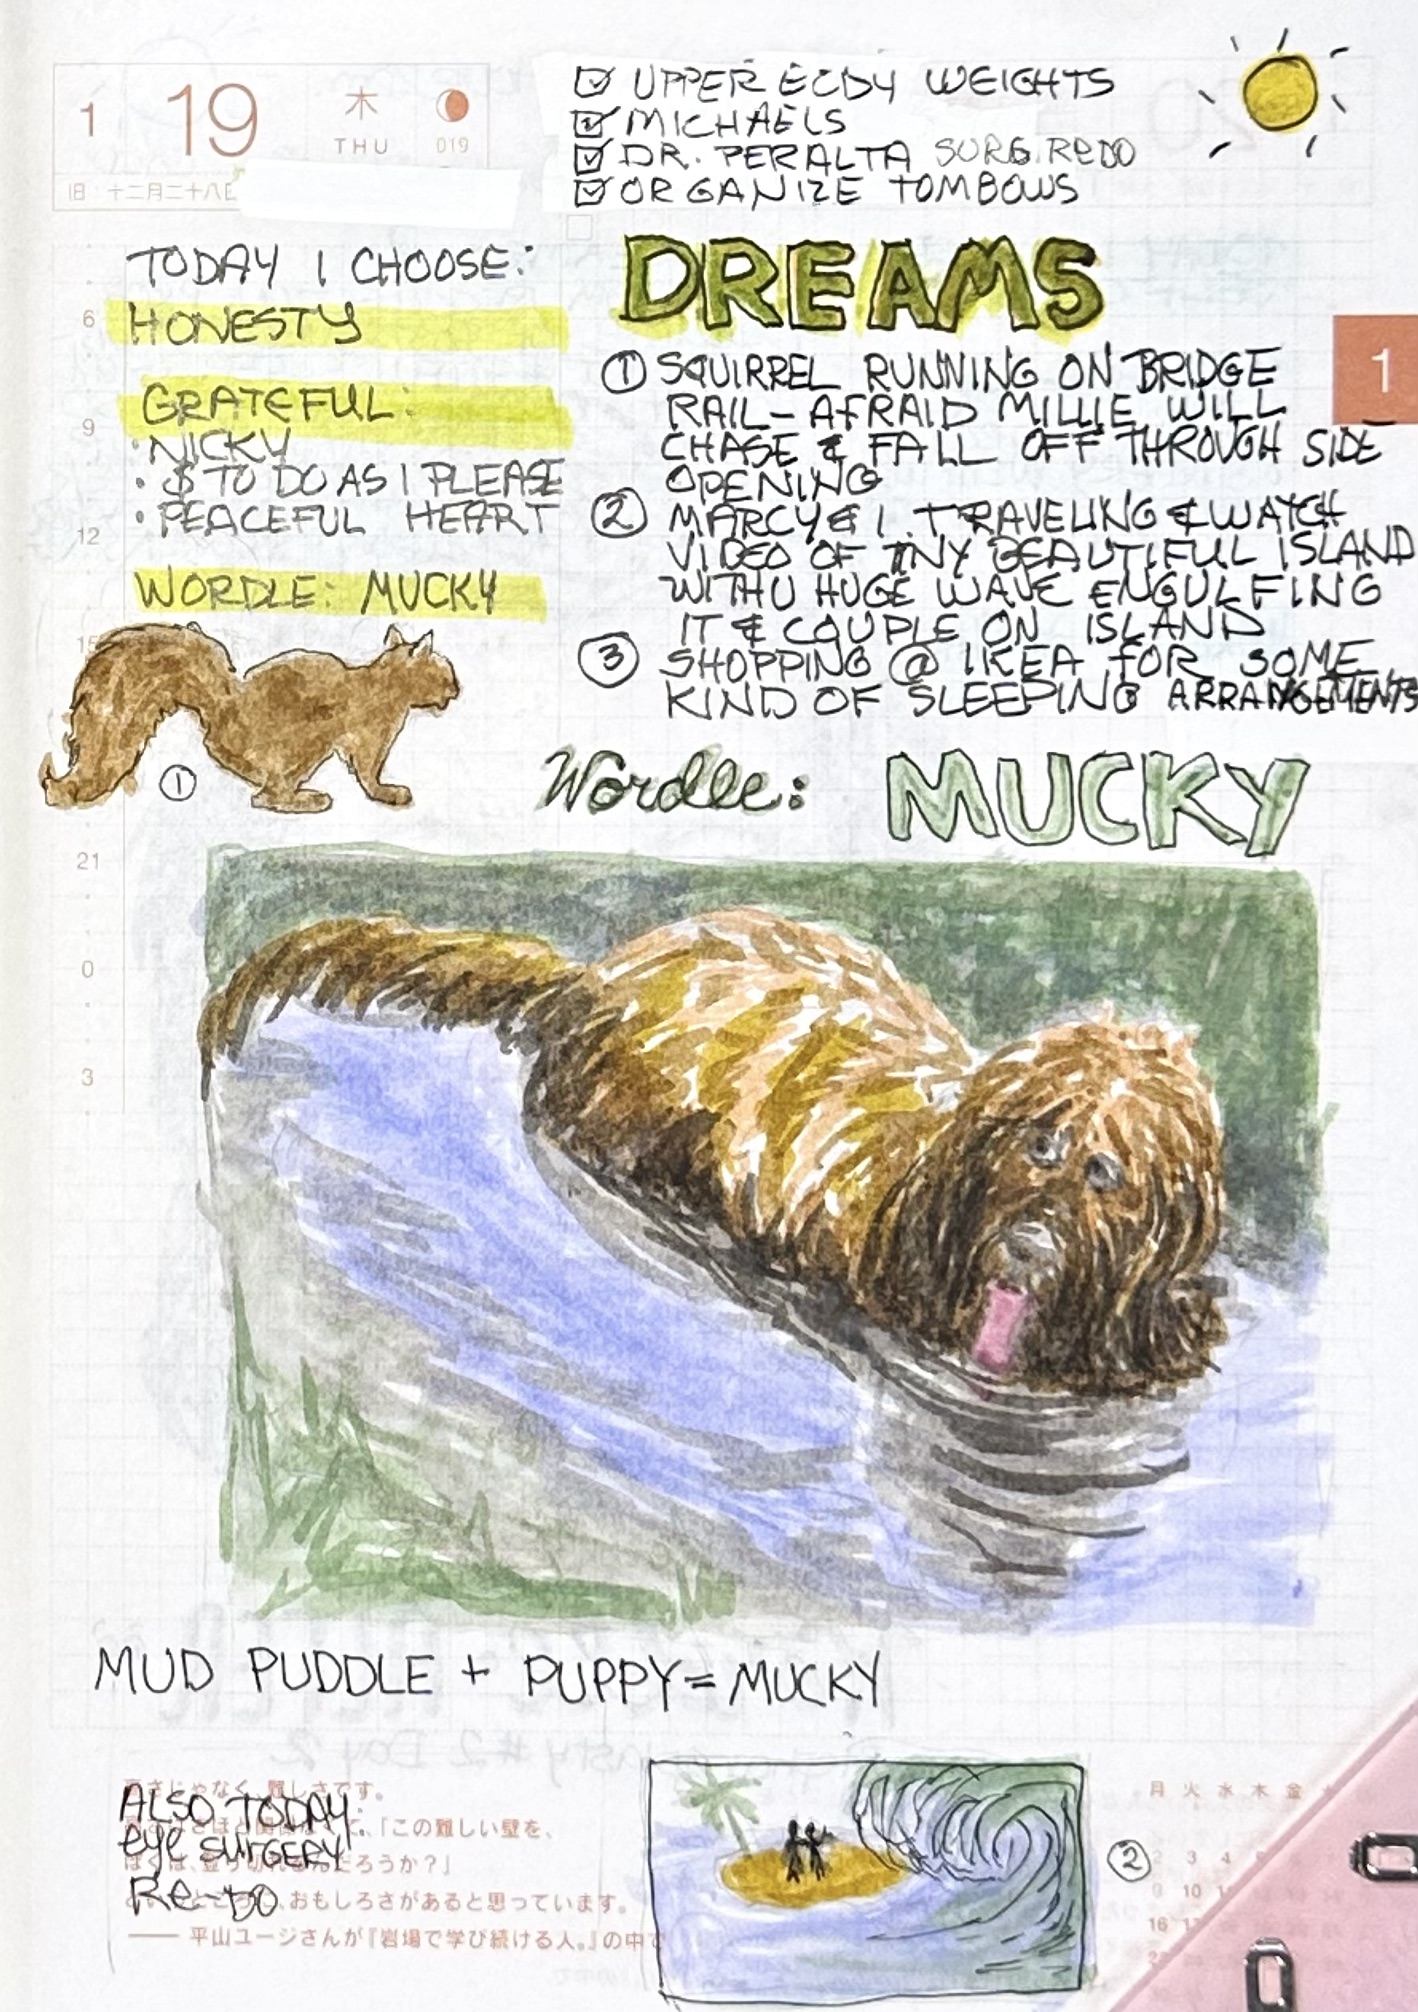 1 19 木 THU 019
旧 十二月二十八日
UPPER BODY WEIGHTS
MICHAELS
DR. PERALTA SURG. REDO
ORGANIZE TOMBOWS
TODAY I CHOOSE:
HONESTY
GRATEFUL:
· NICKY
· $ TO DO AS I PLEASE
· PEACEFUL HEART
WORDLE: MUCKY
DREAMS
① SQUIRREL RUNNING ON BRIDGE
RAIL - AFRAID MILLIE WILL
CHASE & FALL OFF THROUGH SIDE
OPENING
② MARCY & I TRAVELING & WATCH
VIDEO OF TINY BEAUTIFUL ISLAND
WITH HUGE WAVE ENGULFING
IT & COUPLE ON ISLAND
③ SHOPPING @ IKEA FOR SOME
KIND OF SLEEPING ARRANGEMENTS
1
6
9
12
15
21
0
3
①
Wordle: MUCKY
MUD PUDDLE + PUPPY = MUCKY
ALSO TODAY:
eye SURGERY
Re-DO
難しさです。
「この難しい壁を、
だろうか？」
おもしろさがあると思っています。
—— 平山ユージさんが『岩場で学び続ける人。』の中で
②
月 火 水 木 金
2 3 4
9 10
16